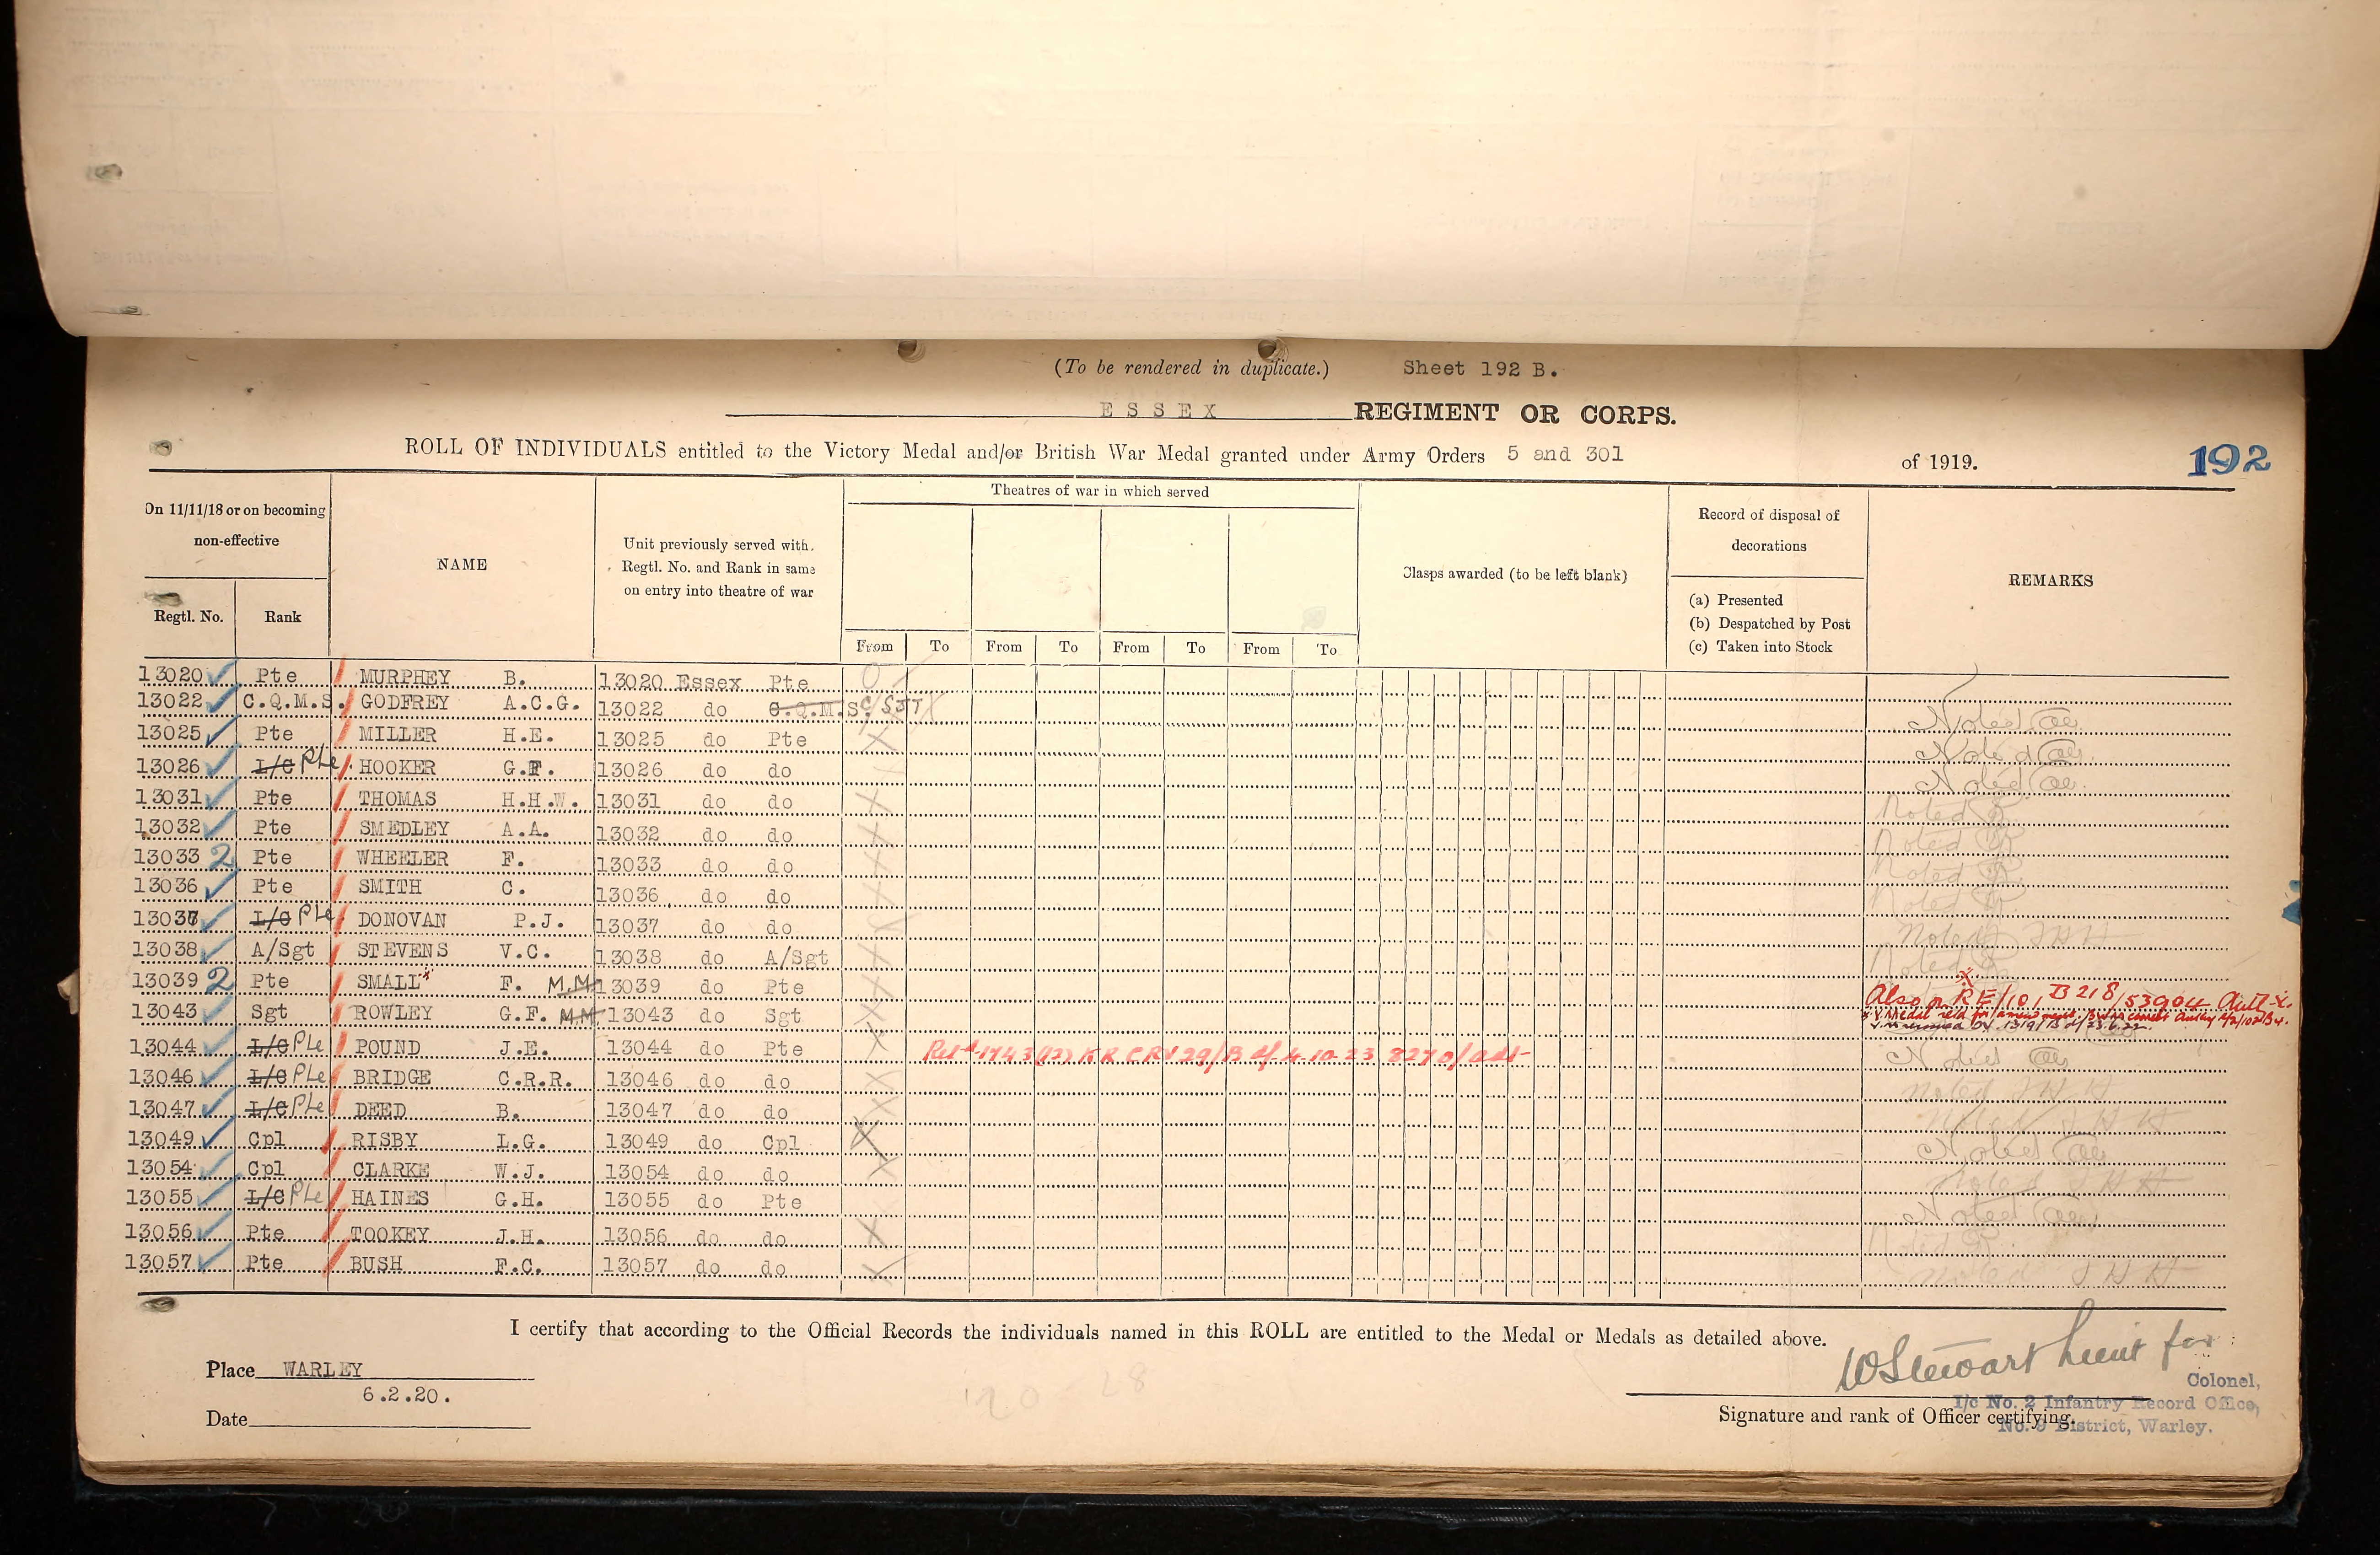 (To be rendered in duplicate.) Sheet 192 B.
ESSEX REGIMENT OR CORPS.
ROLL OF INDIVIDUALS entitled to the Victory Medal and/or British War Medal granted under Army Orders 5 and 301 of 1919. 192
On 11/11/18 or on becoming non-effective
Regtl. No. Rank
NAME
Unit previously served with, Regtl. No. and Rank in same on entry into theatre of war
Theatres of war in which served
From To From To From To From To
Clasps awarded (to be left blank)
Record of disposal of decorations
(a) Presented
(b) Despatched by Post
(c) Taken into Stock
REMARKS
13020 Pte MURPHEY B. 13020 Essex Pte
13022 C.Q.M.S. GODFREY A.C.G. 13022 do C.Q.M.S. C/SJT Noted
13025 Pte MILLER H.E. 13025 do Pte Noted
13026 L/C Pte HOOKER G.F. 13026 do do Noted
13031 Pte THOMAS H.H.W. 13031 do do Noted
13032 Pte SMEDLEY A.A. 13032 do do Noted
13033 2 Pte WHEELER F. 13033 do do Noted
13036 Pte SMITH C. 13036 do do Noted
13037 L/C Pte DONOVAN P.J. 13037 do do Noted
13038 A/Sgt STEVENS V.C. 13038 do A/Sgt Noted
13039 2 Pte SMALL x F. M.M. 13039 do Pte x Also on RE/101 B218/53904 Auth
13043 Sgt ROWLEY G.F. M.M. 13043 do Sgt
13044 L/C Pte POUND J.E. 13044 do Pte Retd 1743 (12) KR CRV 29/B d/ 4.10.23 8270/adt Noted
13046 L/C Pte BRIDGE C.R.R. 13046 do do Noted
13047 L/C Pte DEED B. 13047 do do Noted
13049 Cpl RISBY L.G. 13049 do Cpl Noted
13054 Cpl CLARKE W.J. 13054 do do Noted
13055 L/C Pte HAINES G.H. 13055 do Pte Noted
13056 Pte TOOKEY J.H. 13056 do do Noted
13057 Pte BUSH F.C. 13057 do do Noted
I certify that according to the Official Records the individuals named in this ROLL are entitled to the Medal or Medals as detailed above.
Place WARLEY
6.2.20.
Date
WStewart Lieut for
Colonel,
I/c No. 2 Infantry Record Office,
Signature and rank of Officer certifying.
No. 9 District, Warley.